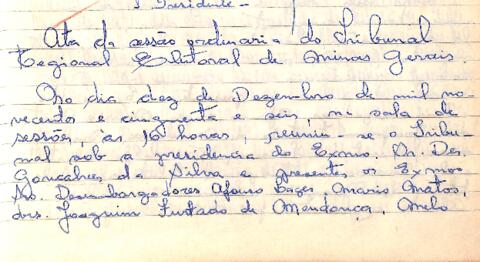 Presidente -
Ata da sessão ordinaria do Tribunal
Regional Eleitoral de Minas Gerais.
Ao dia dez de Dezembro de mil no-
vecento e cinquenta e seis, na sala de
sessões, às 16 horas, reuniu-se o Tribu-
nal sob a presidencia do Exmo. Dr. Des.
Gonçalves da Silva e presentes os Exmos
Srs. Desembargadores Afonso Lages, Mario Matos,
drs. Joaquim Furtado de Mendonça, Melo